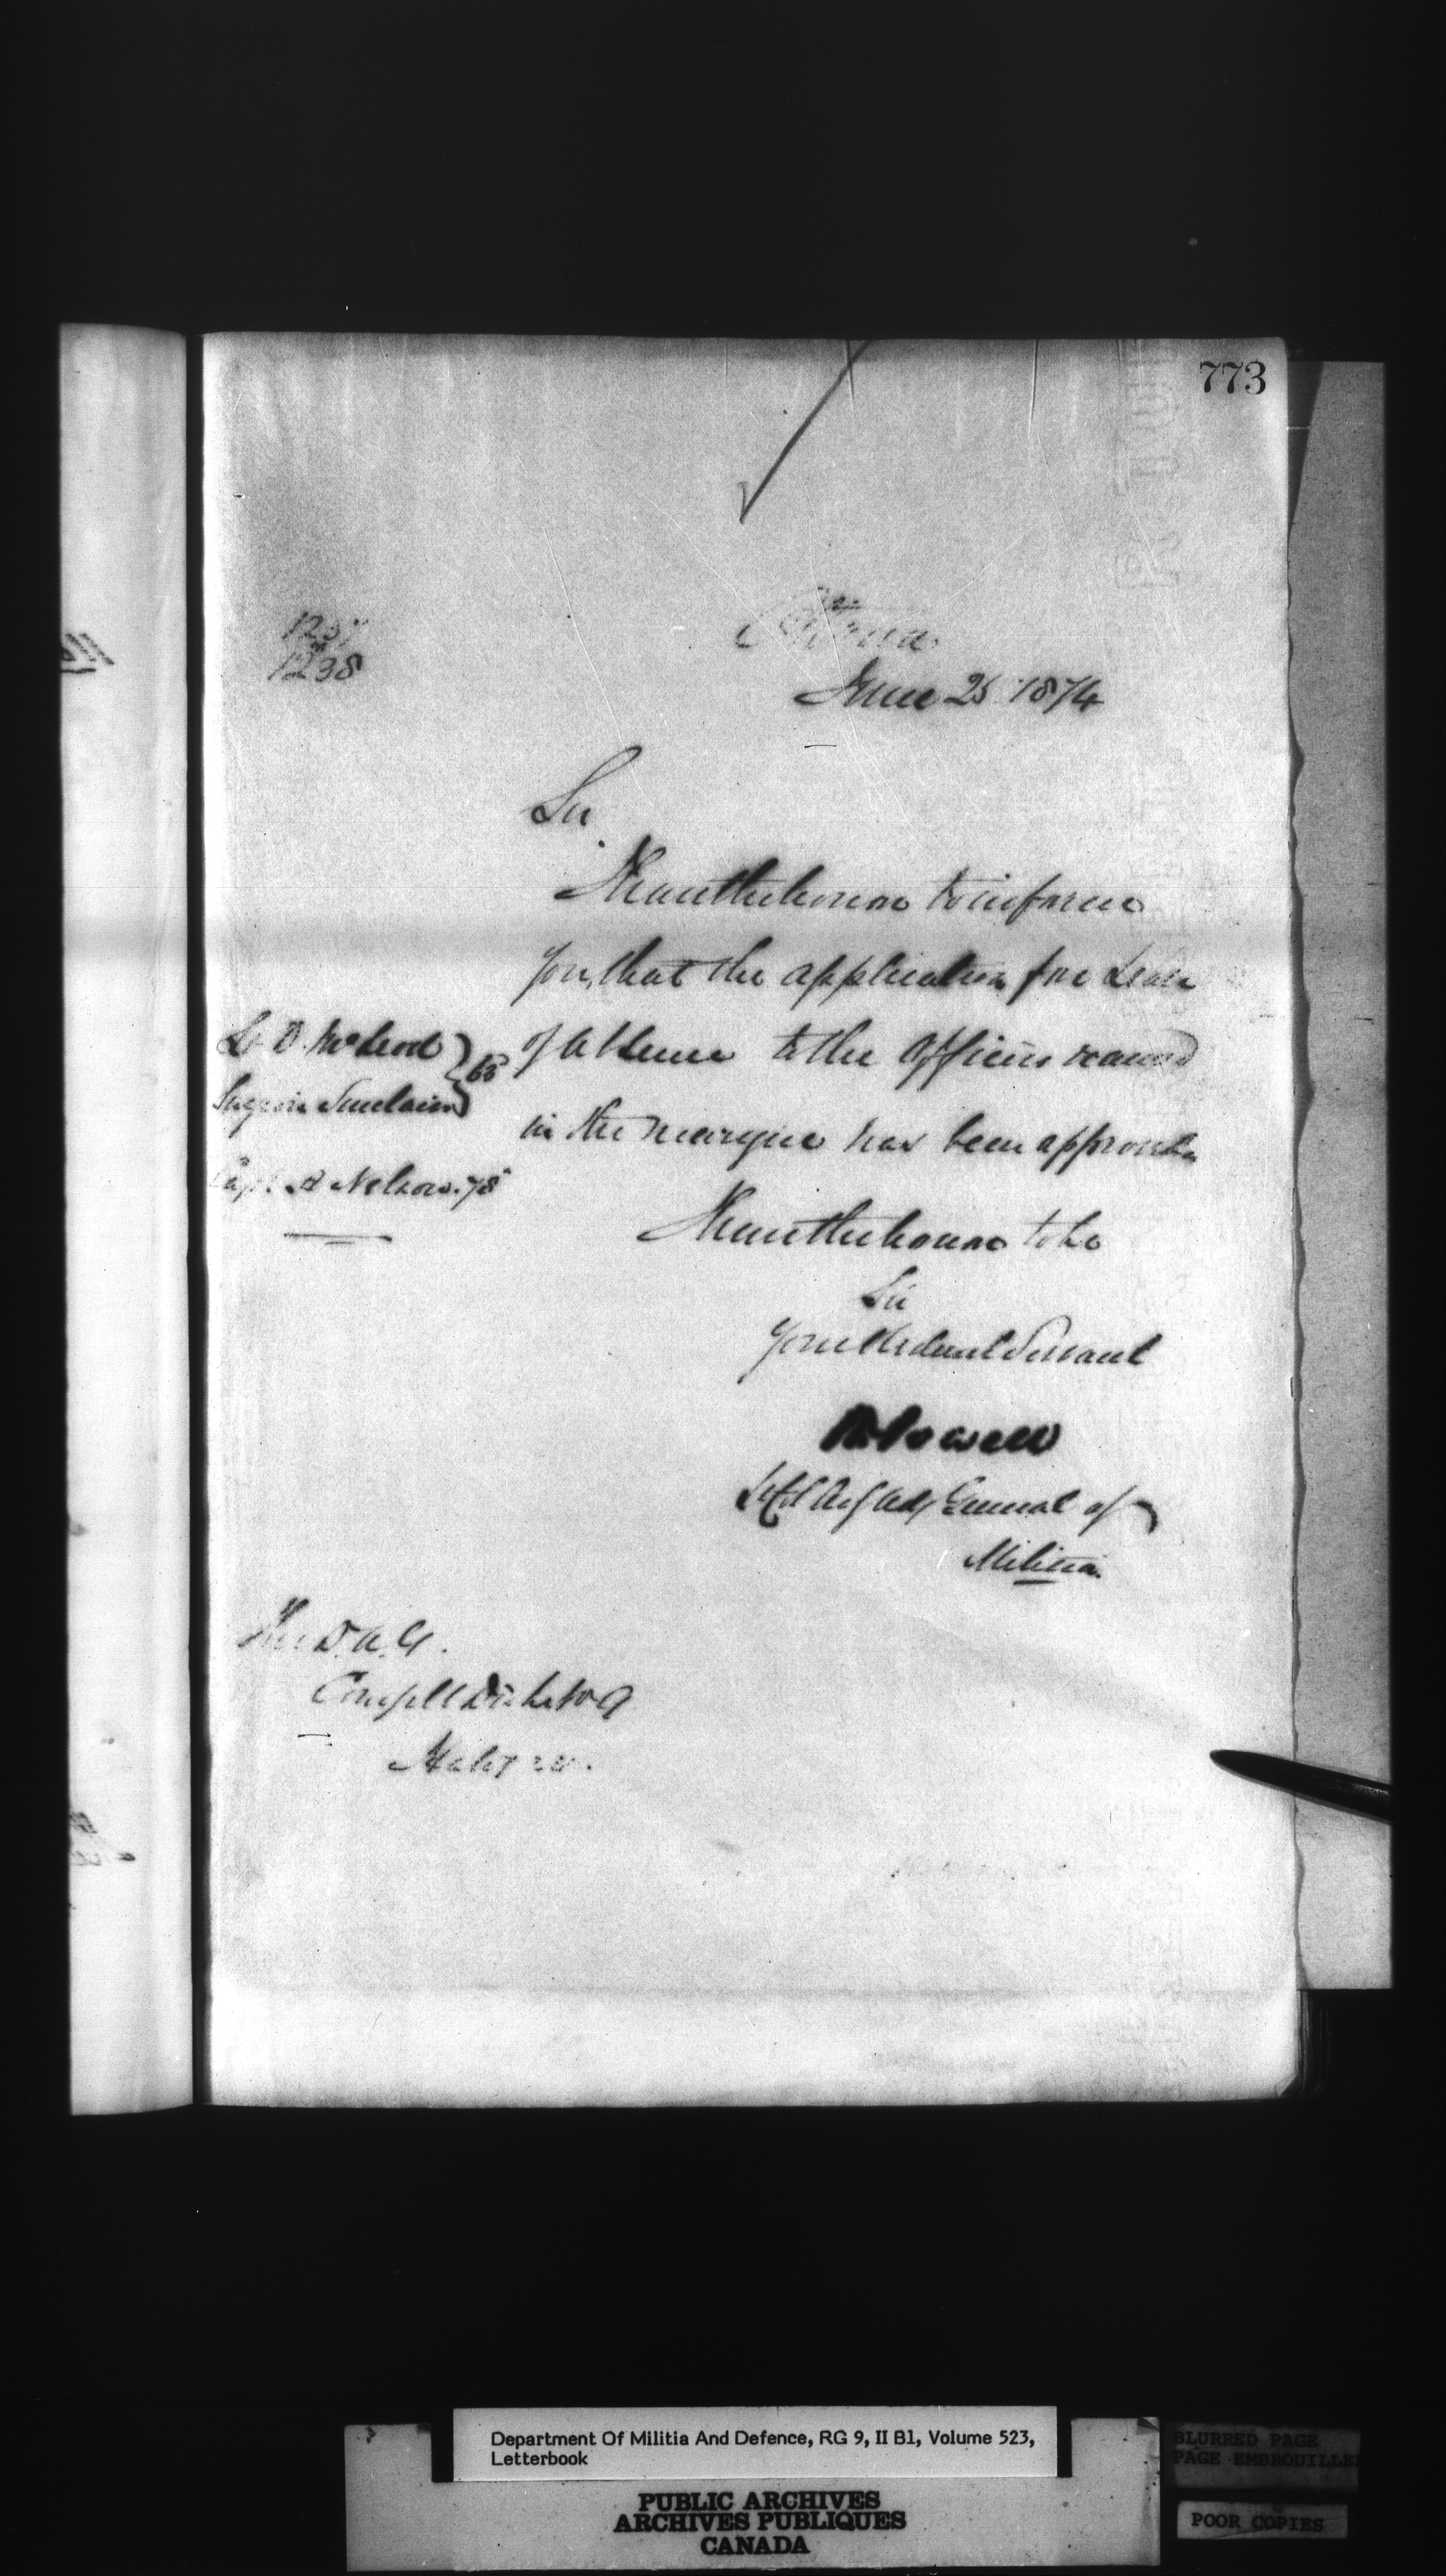 773
1237
1238
Ottawa
June 25 1874
Sir
I have the honor to inform
you, that the application for Leave
of absence to the Officers named
in the margin has been approved
Lt D. McLeod
Surgeon Sinclair
Capt A Nelson 78
I have the honor to be
Sir
Your Obedient Servant
Powell
Lt Col Actg Adj General of
Militia.
The D. A. G.
Comg Mil District No 9
Halifax.
Department Of Militia And Defence, RG 9, II B1, Volume 523,
Letterbook
PUBLIC ARCHIVES
ARCHIVES PUBLIQUES
CANADA
BLURRED PAGE
PAGE EMBROUILLEE
POOR COPIES